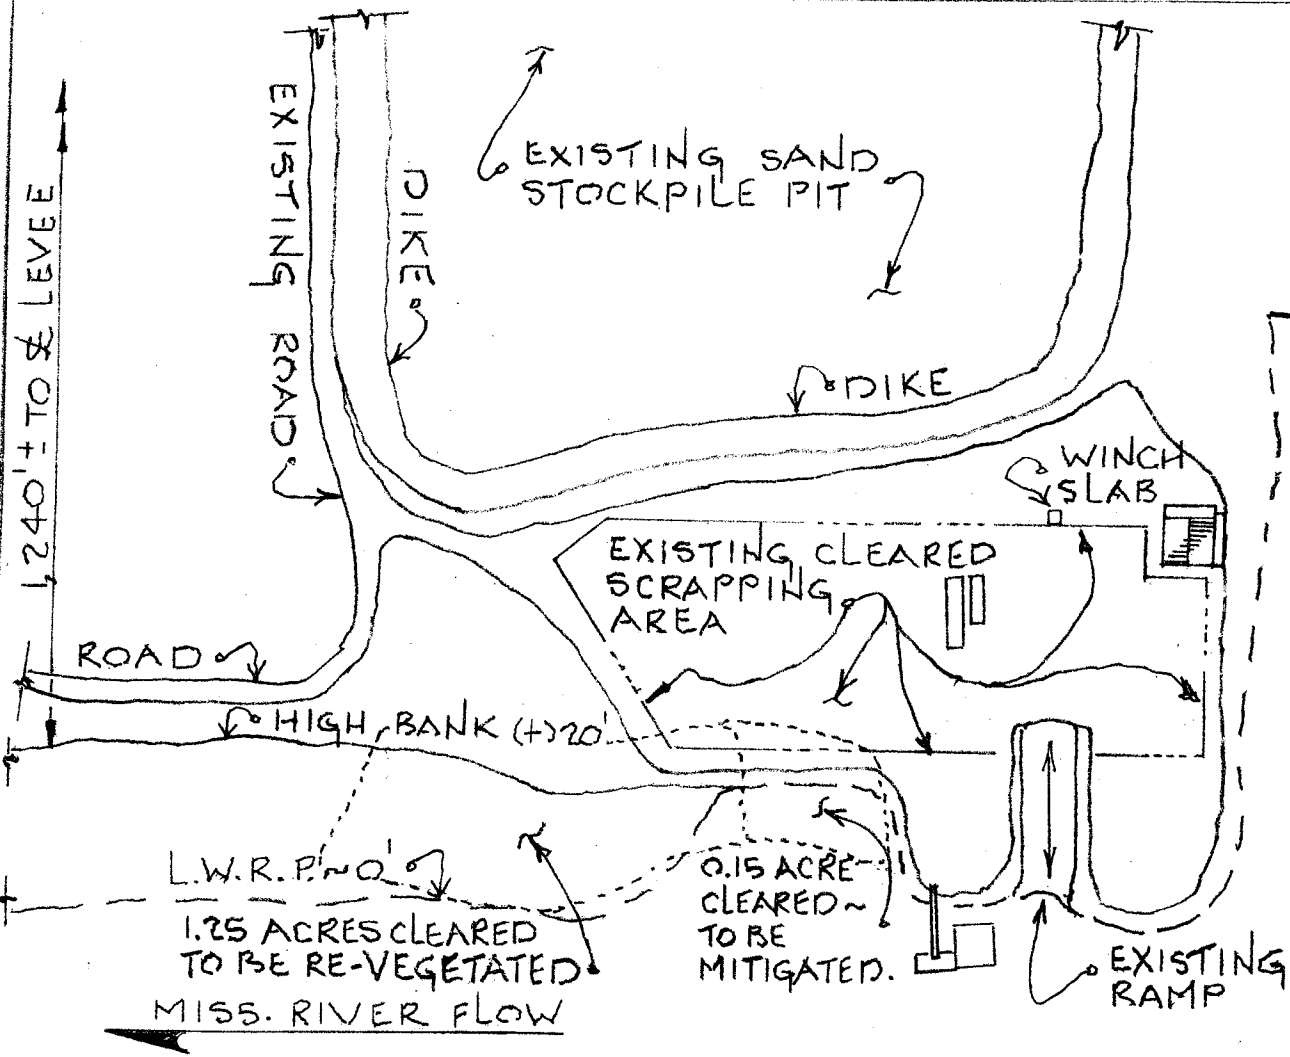 EXISTING SAND
STOCKPILE PIT
EXISTING ROAD
DIKE
1240'± TO ℄ LEVEE
DIKE
WINCH
SLAB
EXISTING CLEARED
SCRAPPING
AREA
ROAD
HIGH BANK (+)20'
L.W.R.P.~0'
1.25 ACRES CLEARED
TO BE RE-VEGETATED
0.15 ACRE
CLEARED~
TO BE
MITIGATED.
EXISTING
RAMP
MISS. RIVER FLOW